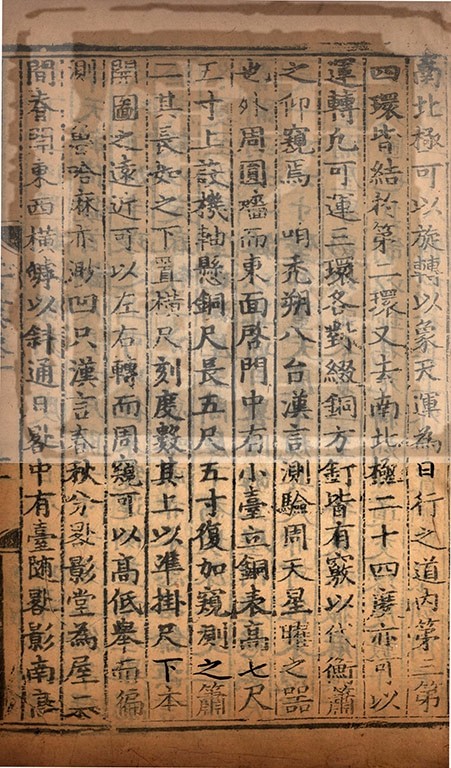 南北極可以旋轉以象天運為日行之道内第三第
四環皆結於第二環又去南北極二十四度亦可以
運轉凡可運三環各對綴銅方釘皆有竅以代衡簫
之仰窺焉 咱禿朔八台漢言測驗周天星曜之器
也外周圓墻而東面啓門中有小臺立銅表高七尺
五寸上設機軸懸銅尺長五尺五寸復加窺測之簫
二其長如之下置横尺刻度數其上以準掛尺下本
開圖之遠近可以左右轉而周窺可以高低舉而徧
測 魯哈麻亦渺凹只漢言春秋分晷影堂為屋二
間脊開東西横罅以斜通日晷中有臺随晷影南高